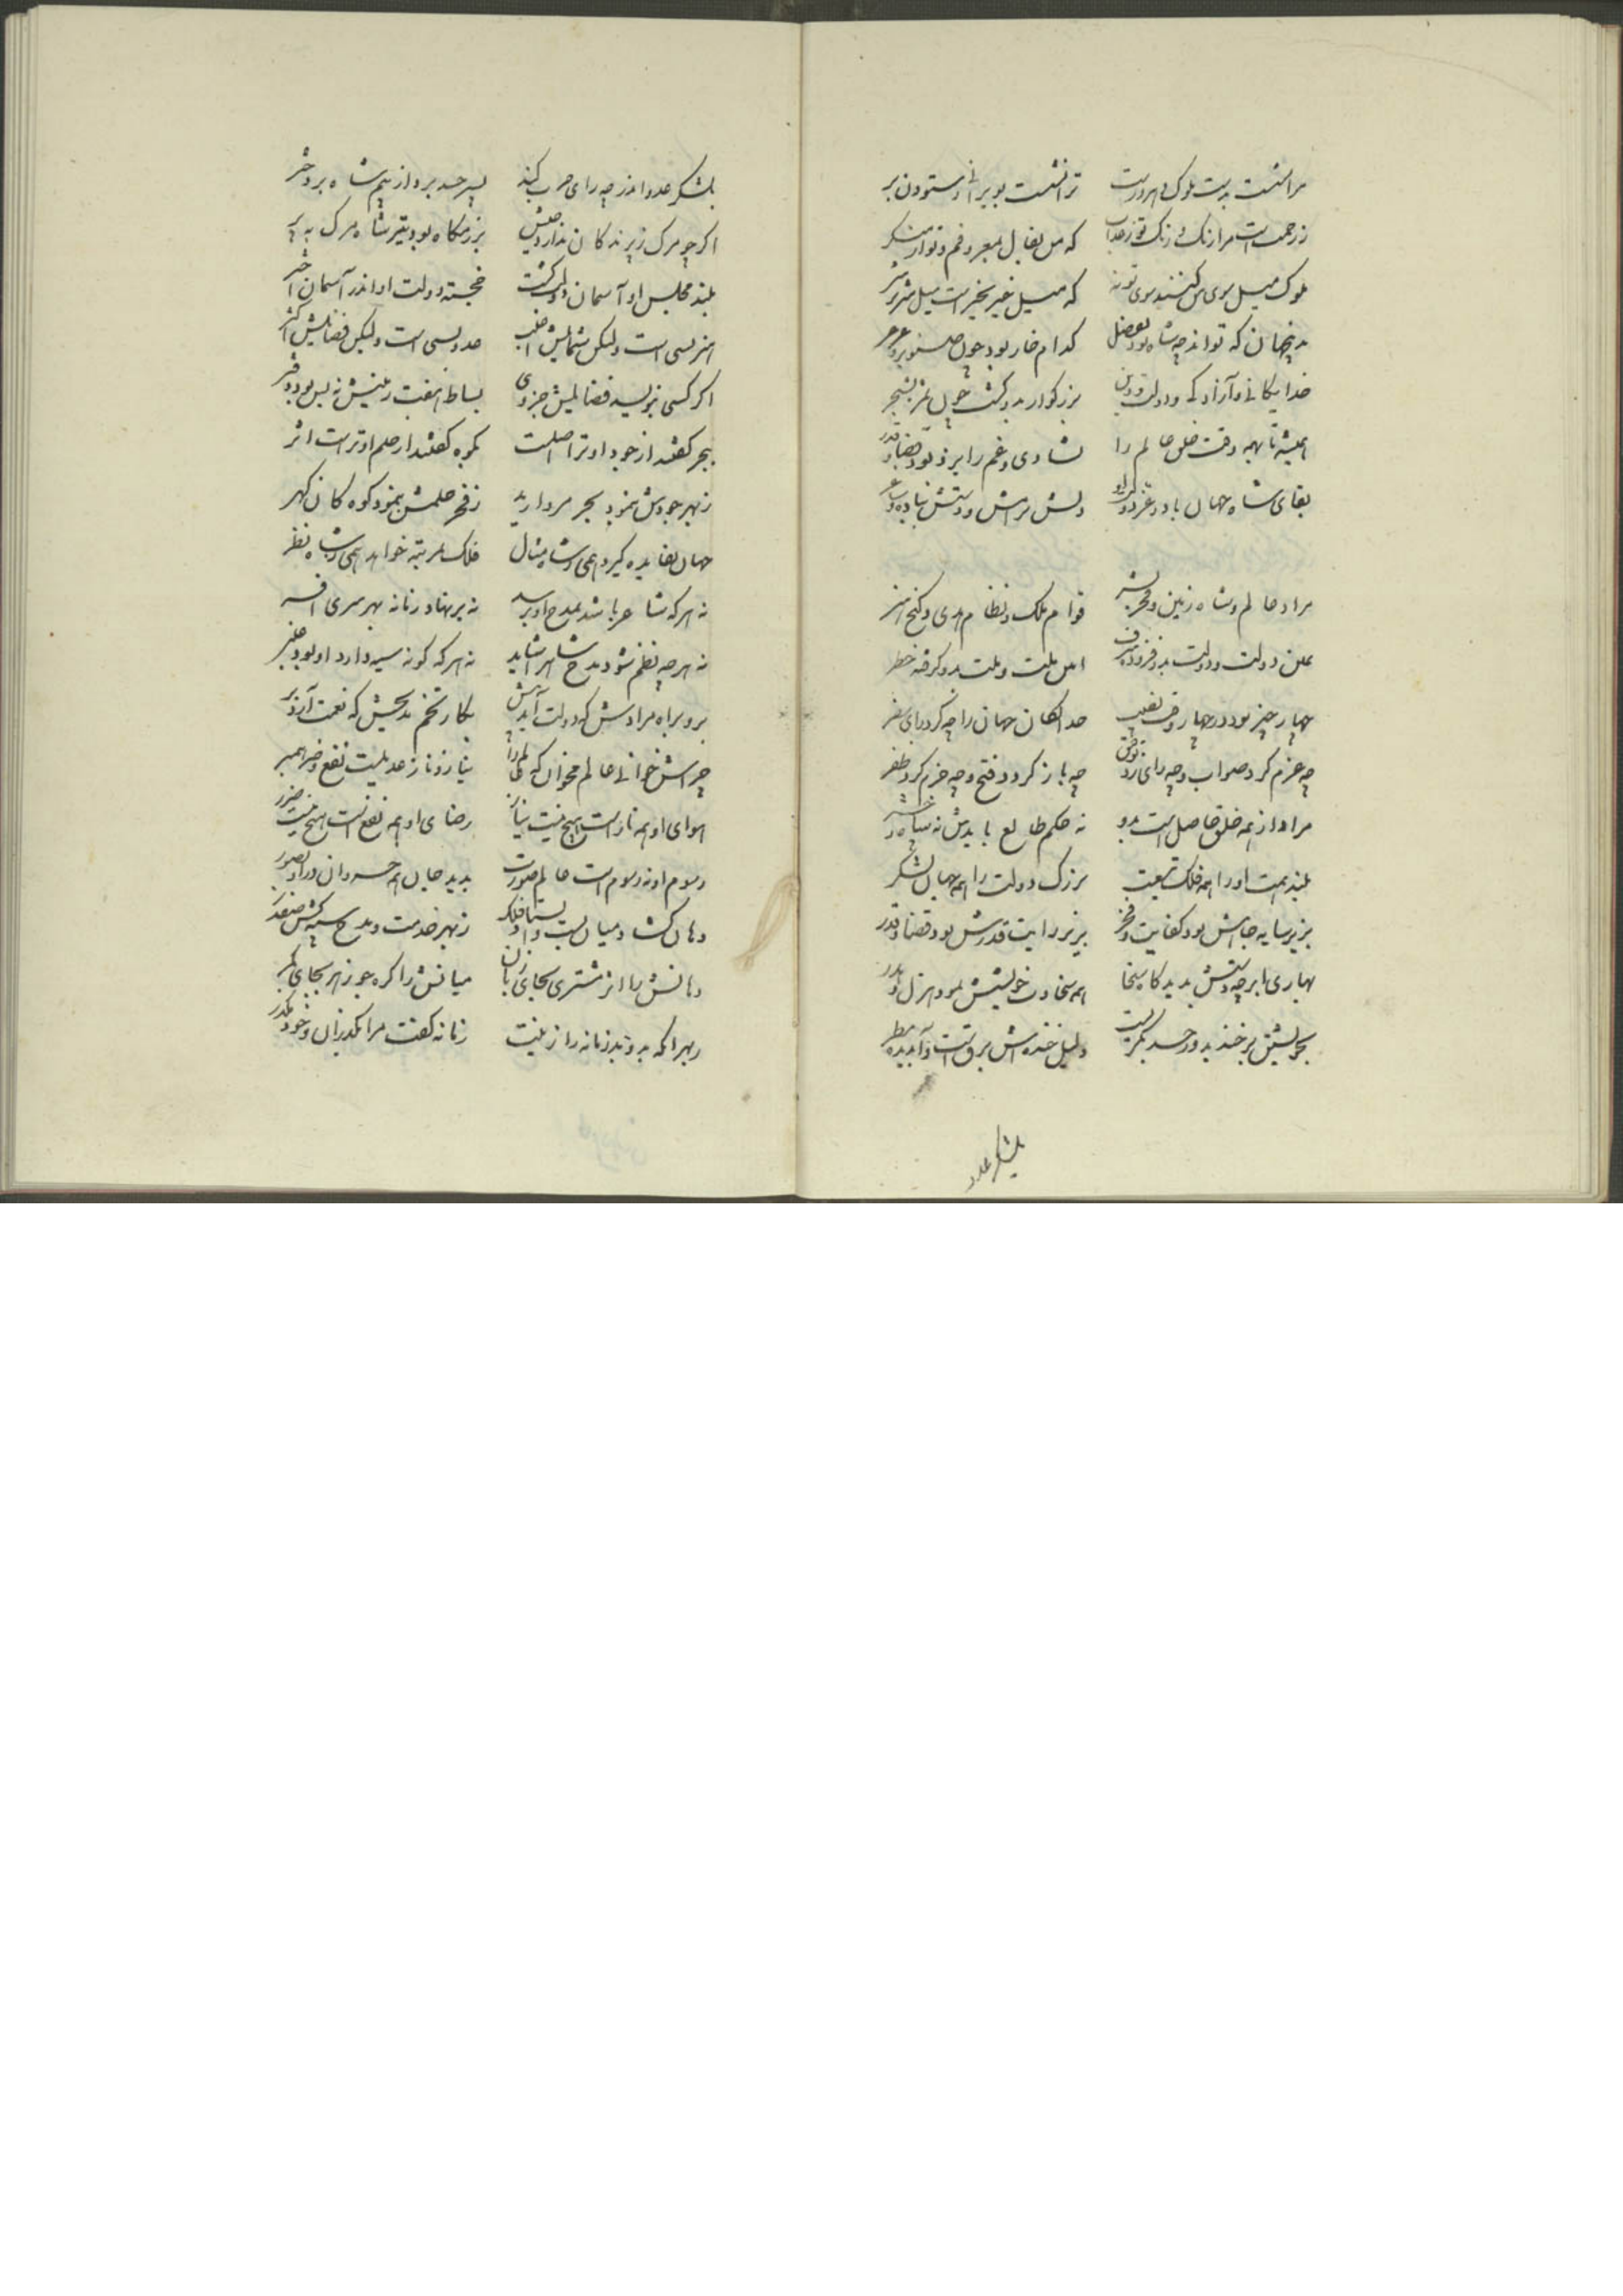 مرا نشست بدست ملوک و میر و سرست ترا نشست بویرانی و ستودان بر
ز رحمت است مرا رنگ و رنگ تو ز عذاب که من بفال معروفم و تو از منکر
ملوک میل سوی من کنند سوی تو نه که میل خیر بخیر است میل شر و شر
بدین جهان که تواند چه شاه بود بفضل کدام خار بود چون صنوبر و عرعر
خدایگانی و آزادگی و دولت و دین بزرگوار بدو گشت چون شجر
همیشه تا همه وقت خلق عالم را بشادی و غم را بر زد بود قضا و قدر
بقای شاه جهان باد و عز و دولت او دلش برامش و دستش بباده و ساغر
مراد عالم و شاه زمین و فخر بشر قوام ملک و نظام هدی و گنج هنر
یمین دولت و دولت بدو فزوده شرف امین ملت و ملت بدو گرفته خطر
چهار چیز بود در چهار وقت نصیب خدایگان جهان را چو کرد رای سفر
چه عزم کرد صواب و چه رای زد توفیق چه باز کرد فتح و چه حزم کرد ظفر
مراد از همه خلق حاصل است بدو نه حکم طالع بایدش نه سپاه و حشر
بلند همت او را همه فلک تبعیت بزرگ دولت را همه جهان لشکر
بزیر سایه جاهش بود کفایت و فخر بزیر رایت قدرش بود قضا و قدر
بهاری ابر چو دستش بدید گاه سخا همه سخاوت خویشش نمود هزل و هدر
بخویشتن بر خندید و رخسار بگریست دلیل خنده‌اش برق است و آب دیده مطر
بلشکر عدو
بلشکر عدو اندر چه رای حرب کند پسر حسد برد از بیم شاه بر دختر
اگر چو مرگ ز پرندگان ندارد جنس بزرمگاه بود تیر شاه مرگ بپر
بلند مجلس او آسمان دولت گشت خجسته دولت او اندر آسمان اختر
هنر بسی است ولیکن شمایلش اغلب عدد بسی است ولیکن فضایلش اکثر
اگر کسی بنویسد فضایلش جزوی بساط هفت زمینش نه بس بود دفتر
ببحر گفتند از جود او ترا اصلست بکوه گفتند از حلم او تر است اثر
ز بهر جودش بنمود بحر مروارید ز فخر حلمش بنمود کوه کان گهر
جهان بفایده گیرد همی ز شاه مثال فلک بمرتبه خواهد همی ز شاه نظر
نه هر که شاعر باشد بمدح او برسد نه بر نهاد زمانه بهر سری افسر
نه هر چه نظم شود مدح شاه را شاید نه هر که گونه سیه دارد او بود عنبر
برو براه مرادش که دولت آید پیش بکار تخم مدیحش که نعمت آرد بر
چراش خوانی عالم مخوان که عالم را نیاز و ناز عدیلست نفع و ضر همبر
هوای او همه ناز است هیچ نیست نیاز رضای او همه نفع است هیچ نیست ضرر
رسوم او نه رسوم است عالم صورت پدید جان همه خسروان در او بصور
دهان گشاد و میان بست ز بهر خدمت و مدح
دهانش را اثر مشتری بجای زبان میانش را گره جوزهر بجای کمر
زمانه گفت مرا مگذران و خود مگذر